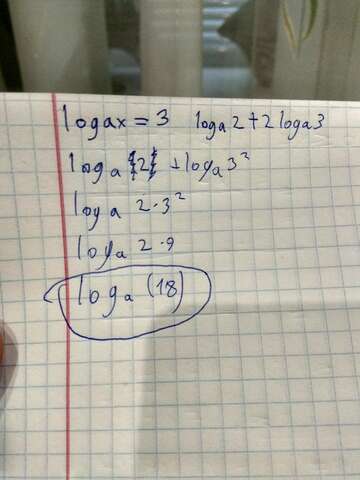 logax = 3 logₐ2+2logₐ3
logₐ {2} + logₐ3²
logₐ 2·3²
logₐ 2·9
logₐ (18)